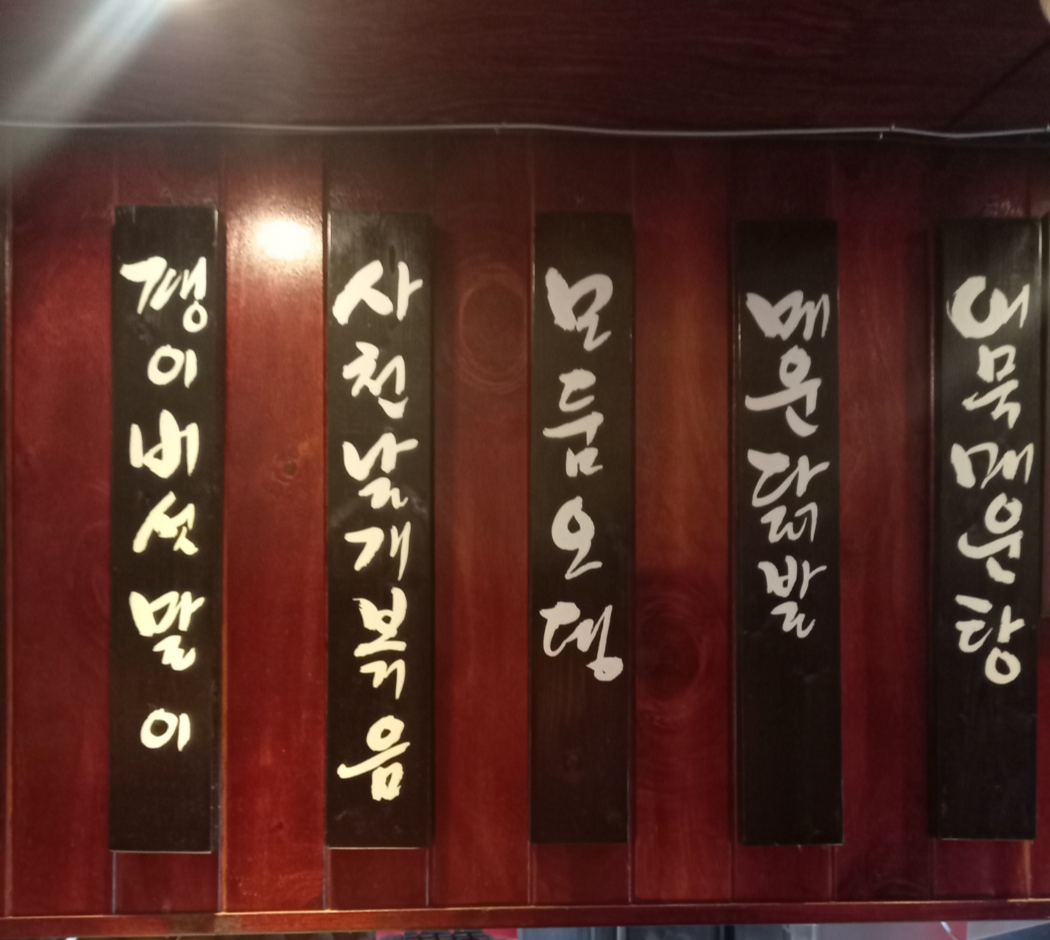 갱이버섯말이
사천날개볶음
모둠오뎅
매운닭발
어묵매운탕